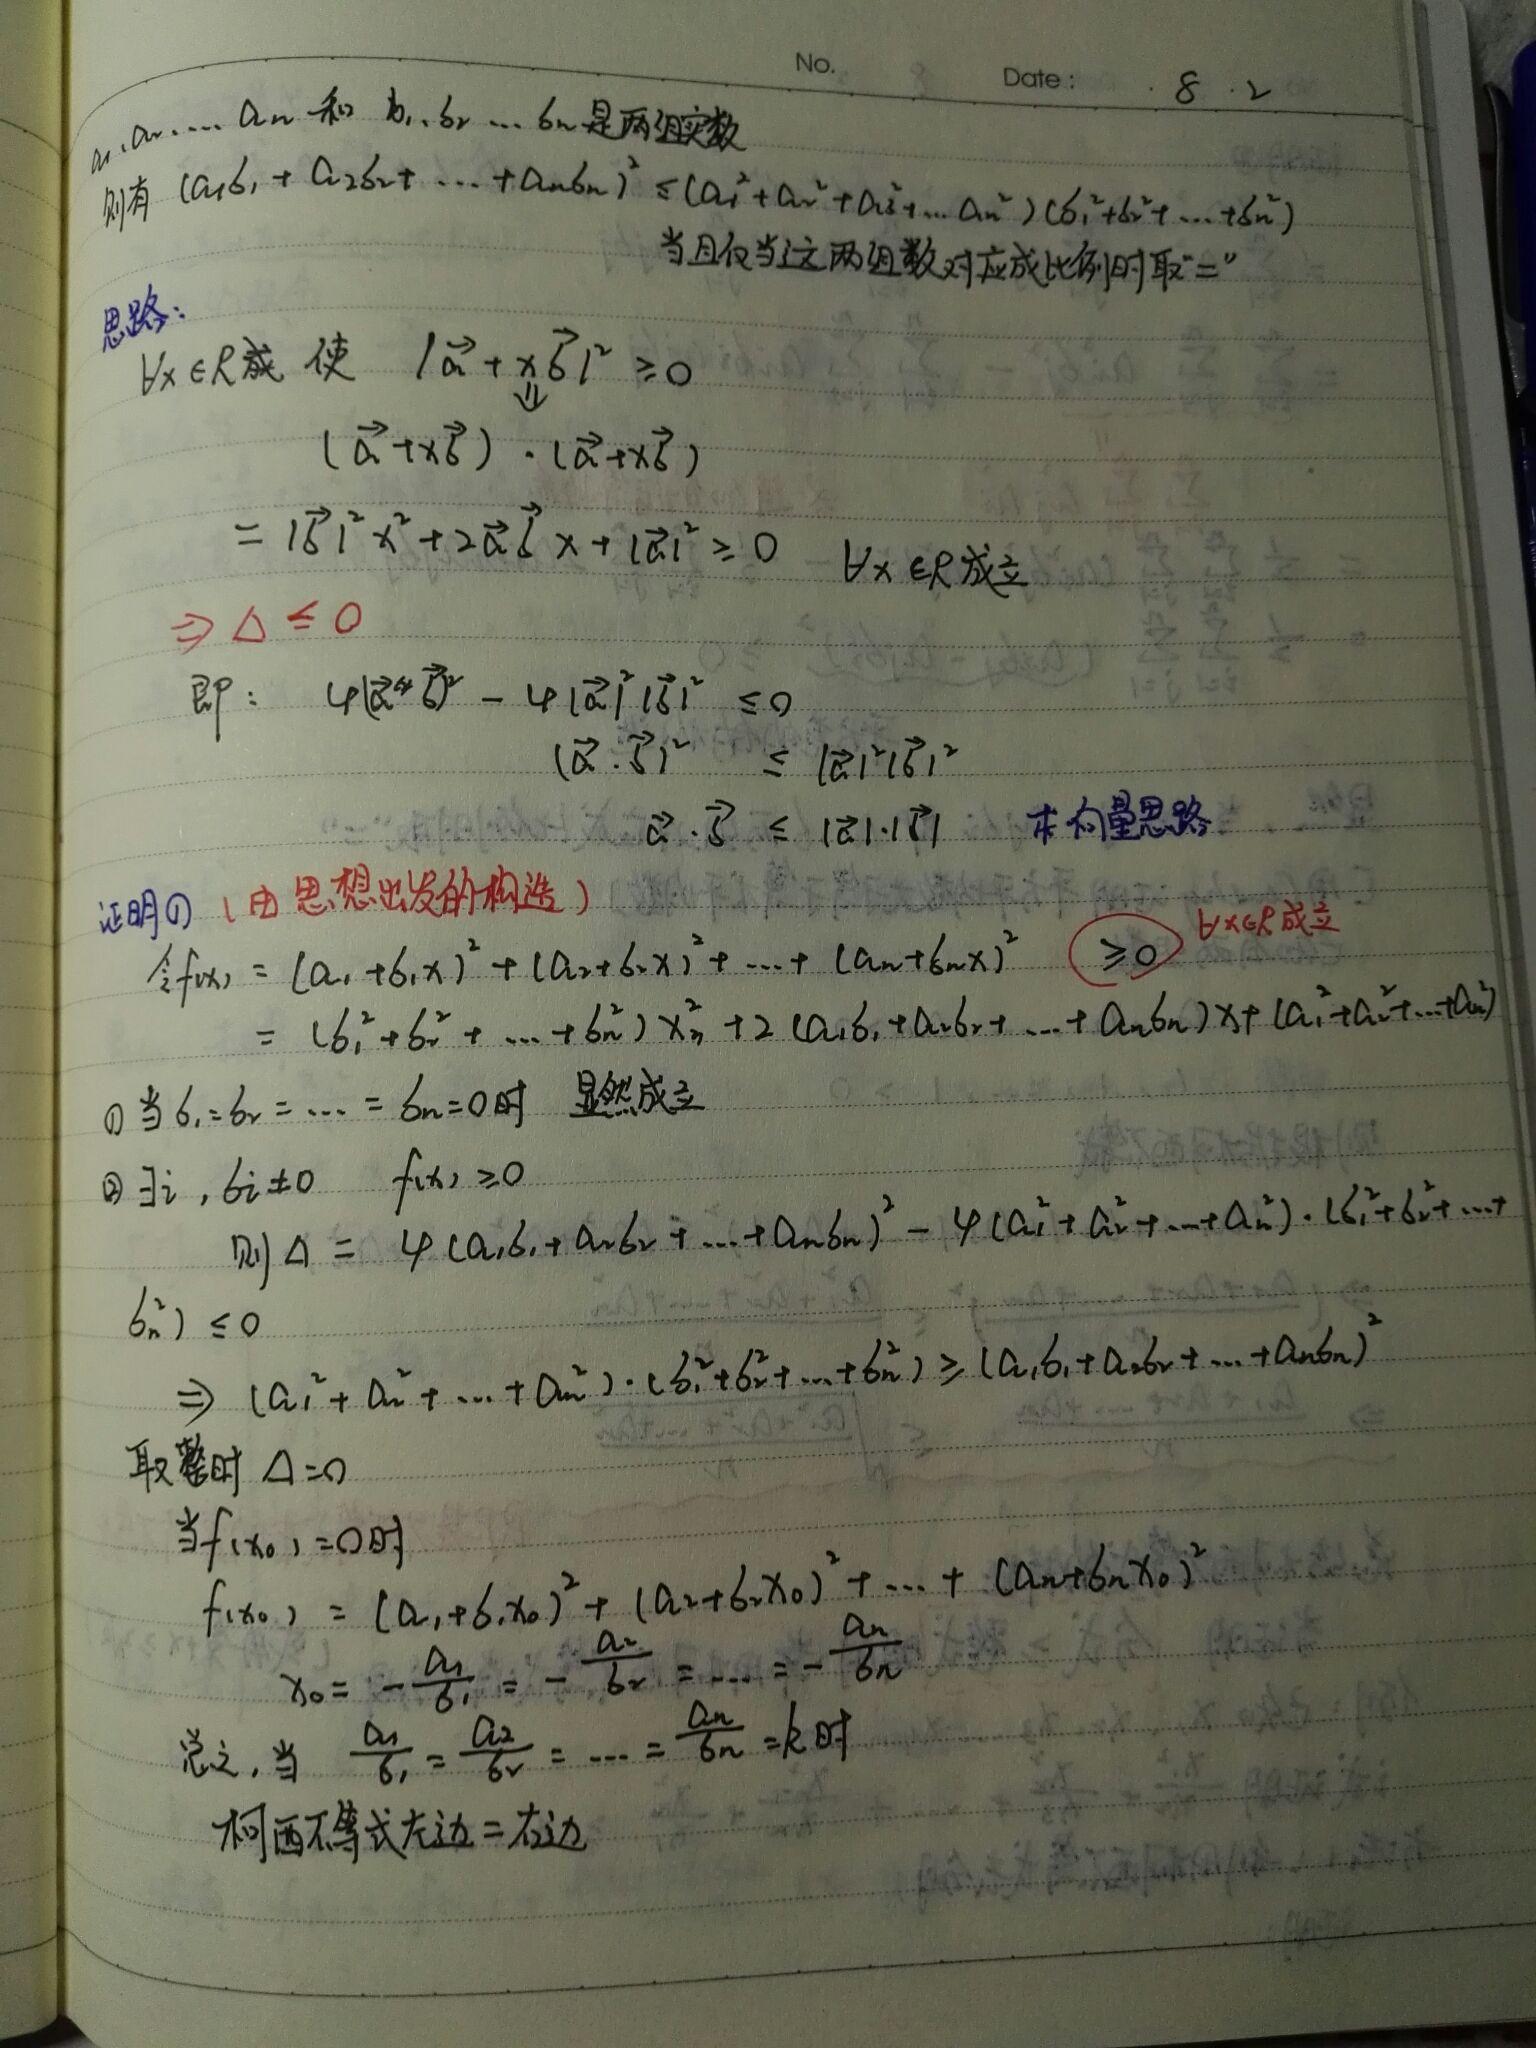 No.
Date: 8.2
a₁,a₂,....aₙ 和 b₁,b₂...bₙ是两组实数
则有 (a₁b₁+a₂b₂+...+aₙbₙ)²≤(a₁²+a₂²+a₃²+...aₙ²)(b₁²+b₂²+...+bₙ²)
当且仅当这两组数对应成比例时取"="
思路:
∀x∈R成 使 |a⃗+xb⃗|²≥0
⇓
(a⃗+xb⃗)·(a⃗+xb⃗)
=|b⃗|²x²+2a⃗b⃗x+|a⃗|²≥0 ∀x∈R成立
⇒Δ≤0
即: 4(a⃗·b⃗)²-4|a⃗|²|b⃗|²≤0
(a⃗·b⃗)² ≤ |a⃗|²|b⃗|²
a⃗·b⃗ ≤ |a⃗|·|b⃗| 向量思路
证明① (由思想出发的构造)
令f(x)=(a₁+b₁x)²+(a₂+b₂x)²+...+(aₙ+bₙx)² ≥0 ∀x∈R成立
=(b₁²+b₂²+...+bₙ²)x²+2(a₁b₁+a₂b₂+...+aₙbₙ)x+(a₁²+a₂²+...+aₙ²)
①当b₁=b₂=...=bₙ=0时 显然成立
②∃i,bᵢ≠0 f(x)≥0
则Δ=4(a₁b₁+a₂b₂+...+aₙbₙ)²-4(a₁²+a₂²+...+aₙ²)·(b₁²+b₂²+...+
bₙ²)≤0
⇒(a₁²+a₂²+...+aₙ²)·(b₁²+b₂²+...+bₙ²)≥(a₁b₁+a₂b₂+...+aₙbₙ)²
取 时 Δ=0
当f(x₀)=0时
f(x₀)=(a₁+b₁x₀)²+(a₂+b₂x₀)²+...+(aₙ+bₙx₀)²
x₀=-a₁/b₁=-a₂/b₂=...=-aₙ/bₙ
总之,当 a₁/b₁=a₂/b₂=....=aₙ/bₙ=k时
柯西不等式左边=右边